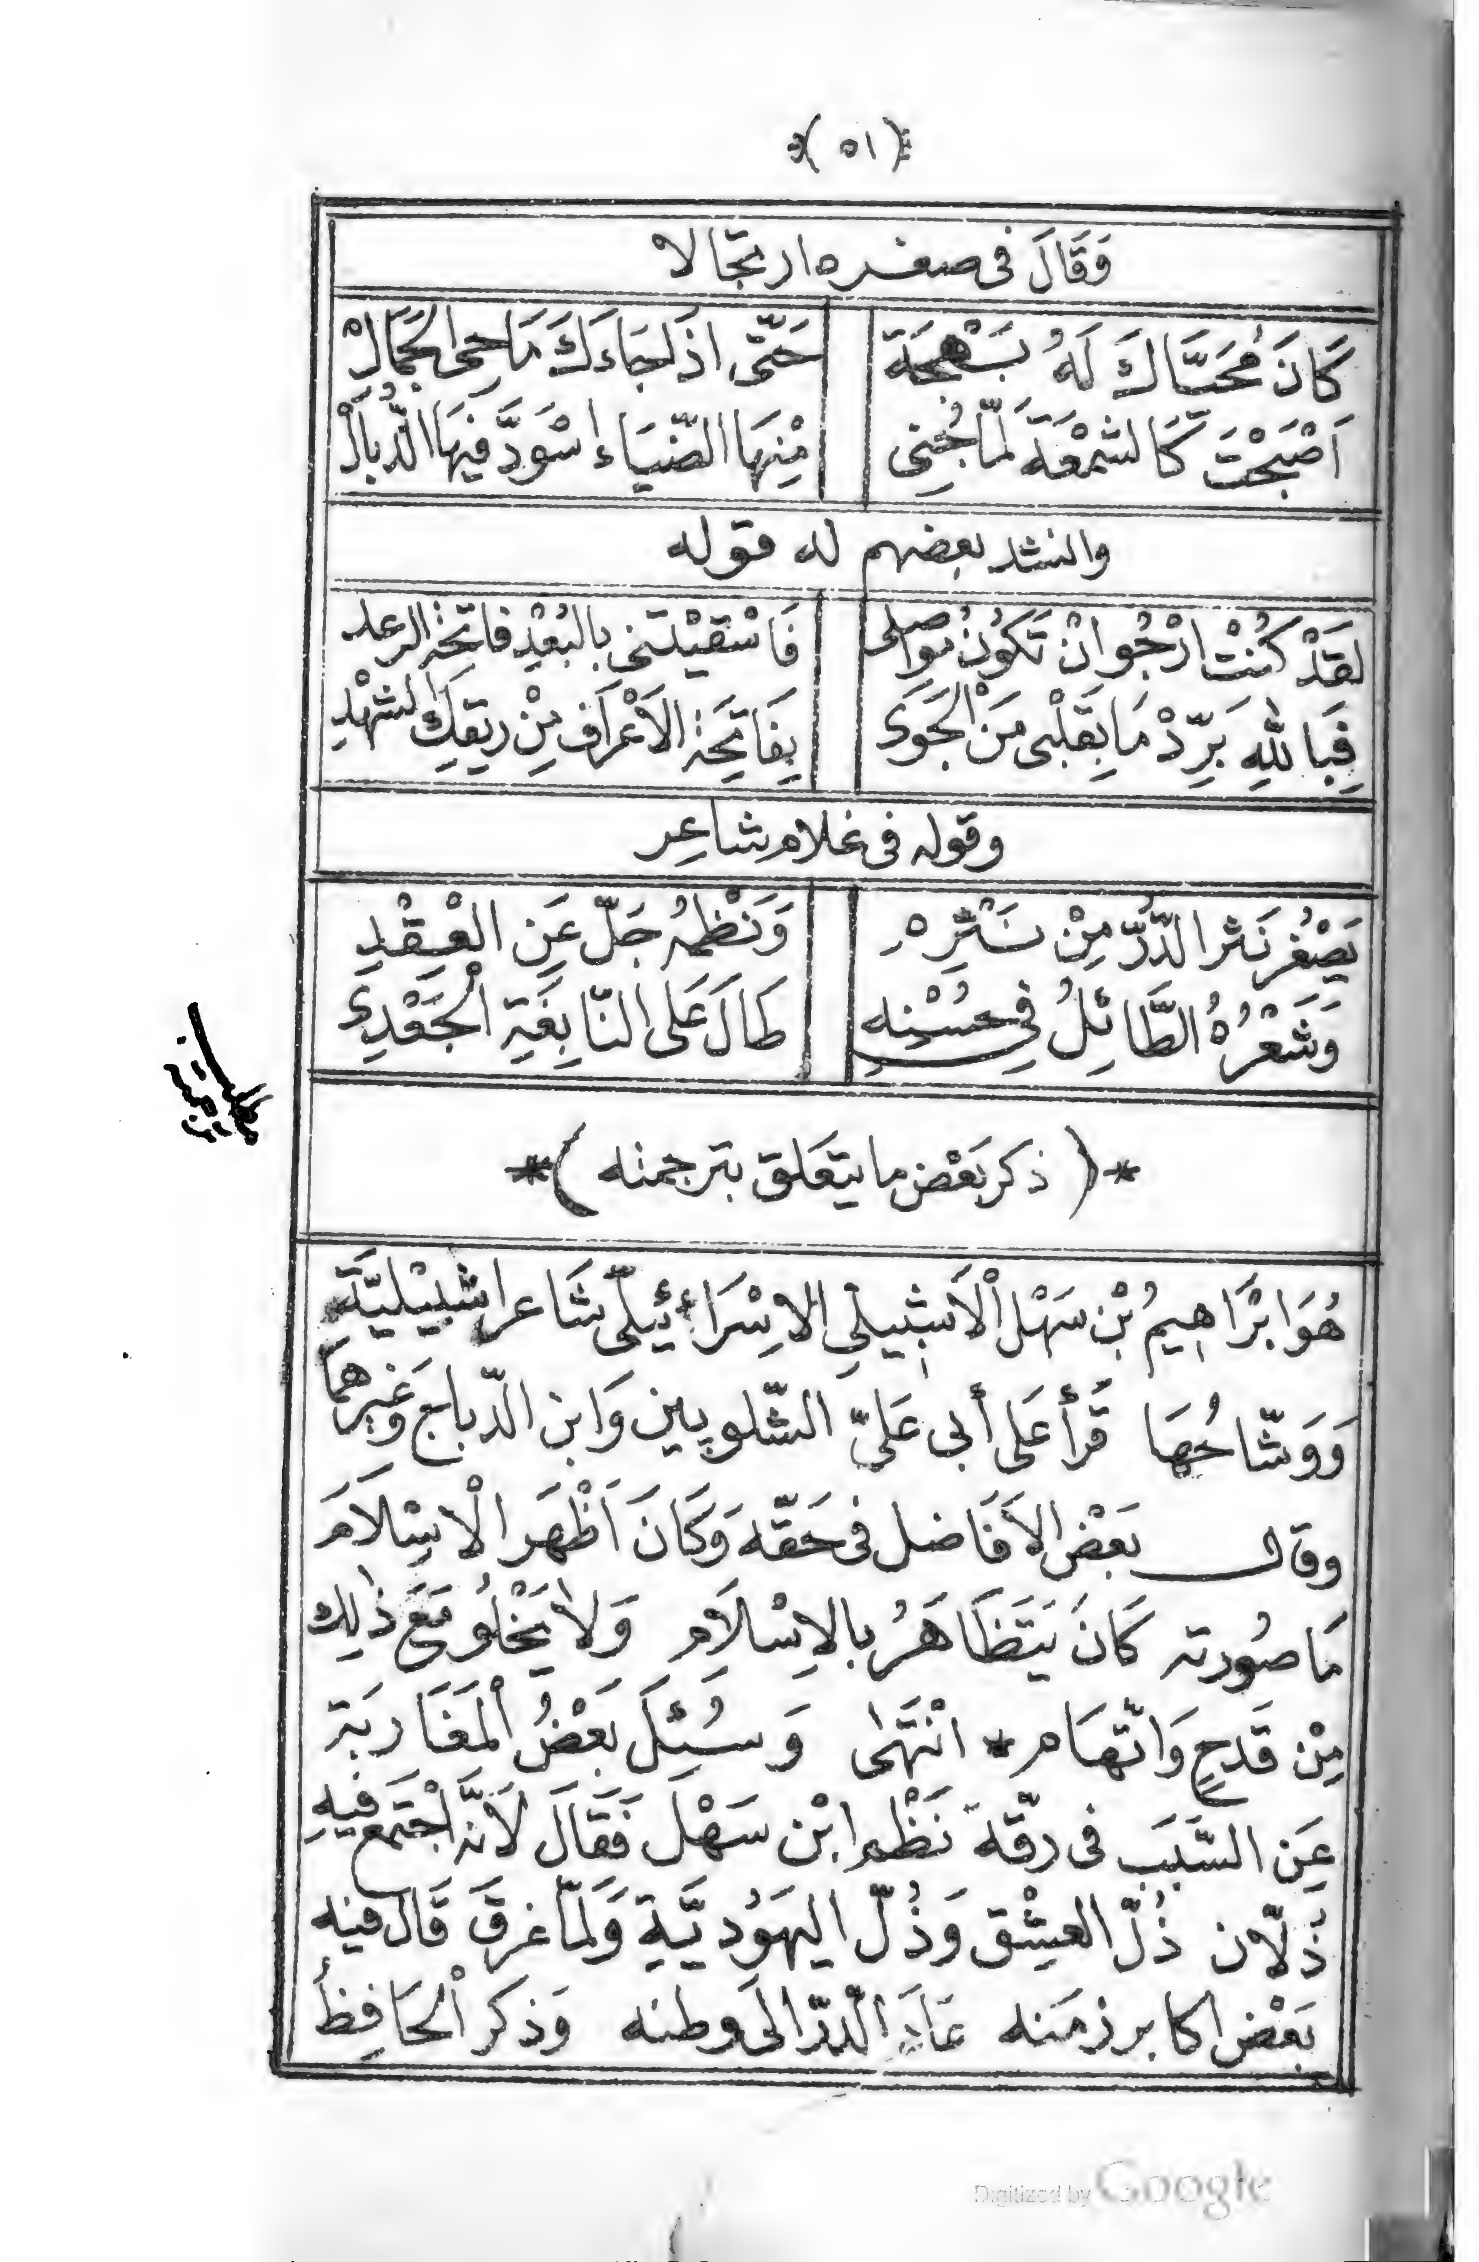 ﴿٥١﴾
وَقَالَ فى صغره ارتجالا
كَانَ مُحَيَّاكَ لَهُ بَهْجَة حَتَّى اذا جَاءَكَ مَاحِى الجَمَالْ
اَصْبَحْتَ كَالشَمْعَةِ لَمَّا خُبِى مِنْهَا الضِّيَاء اسْوَدَّ فِيهَا الذُّبَالْ
وانشد بعضهم له قوله
لَقَدْ كُنْتُ ارْجُو انْ تَكُونُ مُوَاصِلِى فَاسْقَيْتَنى بِالبُعْدِ فاتِحَة الرعد
فَبِاللهِ بَرِّدْ مَا بِقَلْبى مَنْ الْجَوَى بِفَاتِحَة الاَعْرَافِ مِنْ رِيقِكَ الشَهْدِ
وقوله فى غلام شاعِر
يَصْغُر نَثر الدُّرّ مِنْ نَثْرِهِ وَنَظْمهُ جَلّ عَنِ العِقْدِ
وَشَعْرُهُ الطَّائِلُ فِى حُسْنِه طَالَ عَلَى النَّابِغَةِ الْجَعْدِى
*( ذكر بَعْض ما يتعَلق بترجمته )*
هُوَ ابْرَاهِيمُ بْن سَهْل الْاَشبِيلِى الاِسْرَاءئيلىّ شَاعر اشبيْليَّة
وَوَشّاحُهَا قَرأ عَلى أبى عَلىّ الشّلوبين وَابن الدّباج وَغَيرهمَا
وقال بَعْض الاَفَاضل فى حَقّه وَكَانَ اَظْهَر الْاسْلَامَ
مَا صُورته كَانَ يَتَظَاهَرُ بالاِسْلَامِ وَلَا يَخْلُو مَعَ ذٰلِك
مِنْ قَدحٍ وَاتّهَام * انْتَهَى وَسُئِلَ بَعْضُ الْمَغَاربَة
عَن السَّبَبَ فى رقّة نَظْم ابْن سَهْل فَقَالَ لَانّه اجْتَمَعَ فِيهِ
ذَلّان ذُلّ العِشْق وَذُلّ اليَهُوديَّةِ وَلَمّا غرقَ قَالَ فيه
بَعْض اكابر زمَنه عَادَ الدّرّ الىَ وطنه وَذكر الْحَافِظُ
Digitized by Google